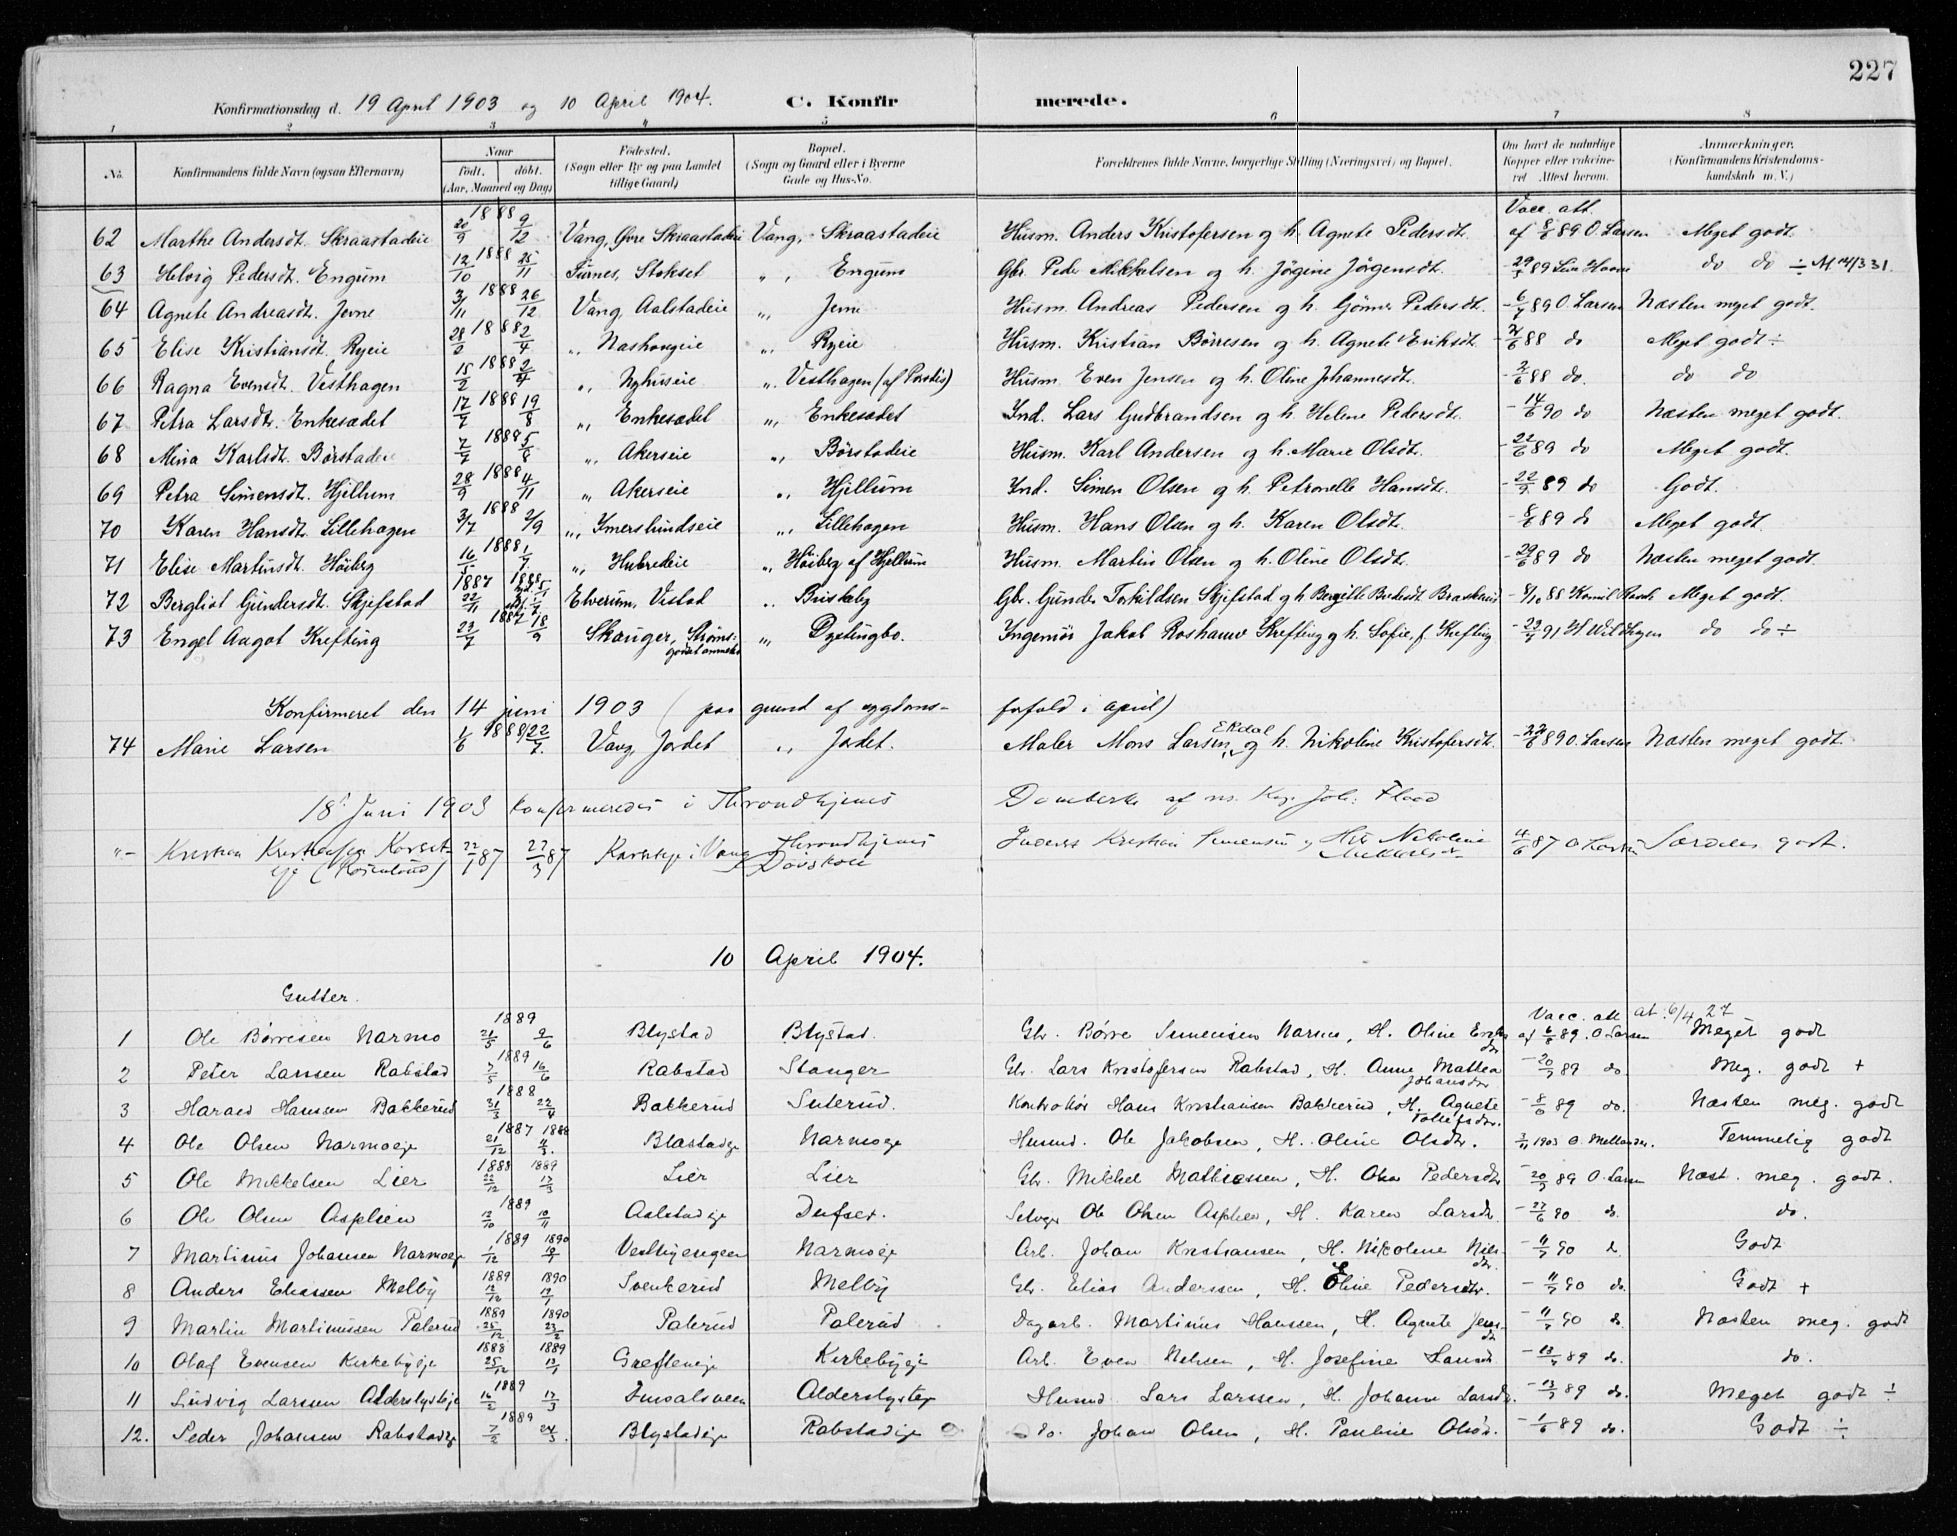 227
Konfirmationsdag d. 19 April 1903 og 10 April 1904. C. Konfirmerede.
1 2 3 4 5 6 7 8
No. Konfirmandens fulde Navn (ogsaa Efternavn) Naar født. døbt. (Aar, Maaned og Dag) Fødested. (Sogn eller By og paa Landet tillige Gaard) Bopæl. (Sogn og Gaard eller i Byerne Gade og Hus-No. Forældrenes fulde Navne, borgerlige Stilling (Næringsvei) og Bopæl. Om havt de naturlige Kopper eller vakcineret Attest herom. Anmærkninger. (Konfirmandens Kristendomskundskab m. V.)
Vacc. att.
62 Marthe Andersdt. Skraastadeie 20/9 1888 9/12 Vang, Øvre Skraastadeie Vang, Skraastadeie Husm. Anders Kristofersen g h. Agnete Pedersdt. af 8/6 89 O Larsen Meget godt.
63 Helvig Pedersdt. Engum 12/10 1888 25/11 Furnes, Stokset " Engum Gbr. Peder Mikkelsen g h. Jörgine Jörgensdt. 89 do do ÷
64 Agnete Andreasdt. Jevne 3/11 1888 26/12 Vang, Aalstadeie " Jevne Husm. Andreas Pedersen g h. Pedersdt. - 6/7 89 O. Larsen Næsten meget godt.
65 Elise Kristiansdt. Ryeie 1888 2/4 " " Ryeie Husm. Kristian Börresen g h. Agnete Eriksdt. 88 do Meget godt ÷
66 Ragna Evensdt. Vesthagen 15/2 1888 2/4 " Nyhuseie " Vesthagen Husm. Even Jensen og h. Oline Johannesdt. - 2/6 88 do. do do
67 Petra Larsdt. Enkesædet 17/7 1888 19/8 " Enkesædet " Enkesædet Ind. Lars Gudbrandsen g h. Helene Pedersdt. - 14/6 90 do Næsten meget godt.
68 Mina Karlsdt. Börstadeie 7/7 1888 5/8 " Akerseie " Börstadeie Husm. Karl Andersen g h. Marie Olsdt. - 22/6 89 do Meget godt.
69 Petra Simensdt. Hjellum 28/9 1888 4/11 " Akerseie " Hjellum Ind. Simen Olsen g h. Petronelle Hansdt. - 22/9 89 do Godt.
70 Karen Hansdt. Lillehagen 3/7 1888 2/9 " Imerslundseie " Lillehagen Husm. Hans Olsen g h. Karen Olsdt. - 8/6 89 do Meget godt.
71 Elise Martinsdt. Höiberg 16/5 1888 1/7 " Hubredeie " Höiberg af Hjellum Husm. Martin Olsen g h. Oline Olsdt. - 29/6 89 do Næsten meget godt.
72 Bergliot Gundersdt. Skjefstad 22/11 1887 1888 Elverum, Vestad " Briskeby Gbr. Gunder Torkildsen Skjefstad g h 88 Meget godt.
73 Engel Aagot Krefting 23/7 1887 18/9 Skauger, " Ingeniör Jakob Krefting g h. Sofie, f. Krefting - 91 do do ÷
Konfirmeret den 14 juni 1903 (paa grund af sygdomsforfald i april)
74 Marie Larsen 1/6 1888 22/7. Vang, Jordet " Jordet. Maler Mons Larsen Ekdal g h. Nikoline Kristofersdt. - 22/6 89 O. Larsen Næsten meget godt.
18' Juni 1903 konfirmeredes i Throndhjems Domkirke af Joh: Flood
"- Kristian Kristiansen 22/1 87 27/3 87 i Vang Throndhjems Döveskole Kristian Simensen 4/6 87 O Larsen Særdeles godt.
10 April 1904.
Gutter.
Vacc. att at. 6/4 27
1 Ole Børresen Narmo 21/5 1889 9/6 Blystad Blystad. Gbr. Børre Simensen Narmo, H. Oline Eriksdr. af 6/8 89. O Larsen Meget godt
2 Peter Larssen Rabstad 7/5 1889 16/6 Rabstad Stanger Gbr. Lars Kristofersen Rabstad, H. Anne Mathea Johansdr - 20/7 89 do. Meg. godt +
3 Harald Hanssen Bakkerud 31/3 1888 22/4 Bakkerud Suterud. Kontrolør Hans Kristiansen Bakkerud, H. Agnete Tollefsdr. - 8/6 89 do. Næsten meg. godt
4 Ole Olsen Narmoeje 21/12 1887 1888 Blæstadeje Narmoeje Husmd. Ole Jakobsen, H. Oline Olsdr. 1903 O. Temmelig godt
5 Ole Mikkelsen Lier 22/12 1888 1889 17/3 Lier Lier Gbr. Mikkel Mathiessen, H. Pedersdtr - 20/7 89 O. Larsen Næst. meg. godt.
6 Ole Olsen Asplien 13/10 1889 10/11 Aalstadeje Dufset. Selvejer Ole Olsen Asplien, H. Karen Larsdr. - 27/6 90 do. do.
7 Martinus Johansen Narmoeje 1/12 1889 1890 Narmoeje Arb. Johan Kristiansen, H. Nikoline Nilsdr. - 11/7 90 do. Godt
8 Anders Eliassen Melby 12/12 1889 1890 Svenkerud Melby Gbr. Elias Anderssen, H. Eline Pedersdtr. - 11/7 90 do. Godt +
9 Martin Martinussen Palerud 25/12 1889 1890 23/2 Palerud Palerud Dagarb. Martinus Hanssen, H. Agnete Jensdr - 11/7 90 do Næsten meg. godt
10 Olaf Evensen Kirkebyeje 25/12 1888 1889 13/1 Grefteneje Kirkebyeje Arb. Even Nilssen, H. Josefine - 13/7 89 do. do.
11 Ludvig Larssen Alderslysteje 16/2 1889 17/3 Alderslysteje Husmd. Lars Larssen, H. Johanne Larsdr. - 13/7 89 do. Meget godt ÷
12. Peder Johansen Rabstadeje 7/2 1889 24/3. Blystadeje Rabstadeje do. Johan Olsen, H. Pauline Olsdr. - 1/6 89 do. Godt ÷